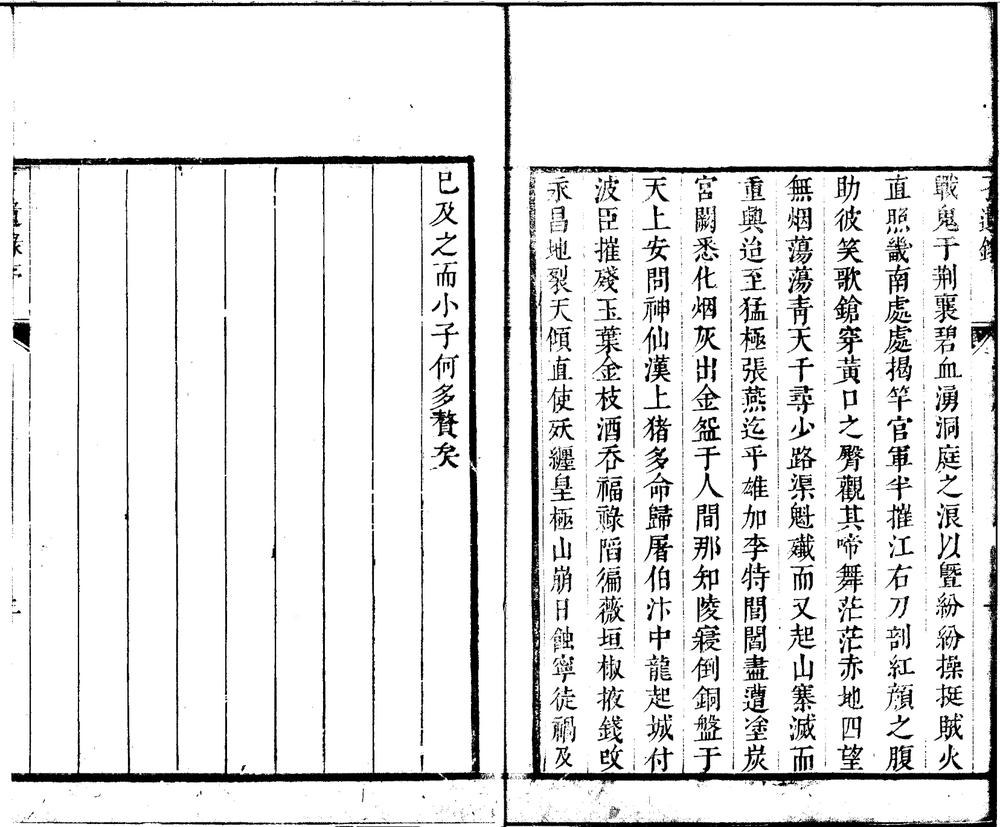 戰鬼于荆襄碧血湧洞庭之浪以曁紛紛操挺賊火
直照畿南處處揭竿官軍半摧江右刀剖紅顔之腹
助彼笑歌鎗穿黃口之臀觀其啼舞茫茫赤地四望
無烟蕩蕩靑天千尋少路渠魁殱而又起山寨滅而
重興迨至猛極張燕迄乎雄加李特閭閻盡遭塗炭
宮闕悉化烟灰出金盌于人間那知陵寢倒銅盤于
天上安問神仙漢上猪多命歸屠伯汴中龍起城付
波臣摧殘玉葉金枝酒呑福祿䧟徧薇垣椒掖錢改
永昌地裂天傾直使妖纏皇極山崩日蝕寧徒禍及
已及之而小子何多贅矣
遺錄序